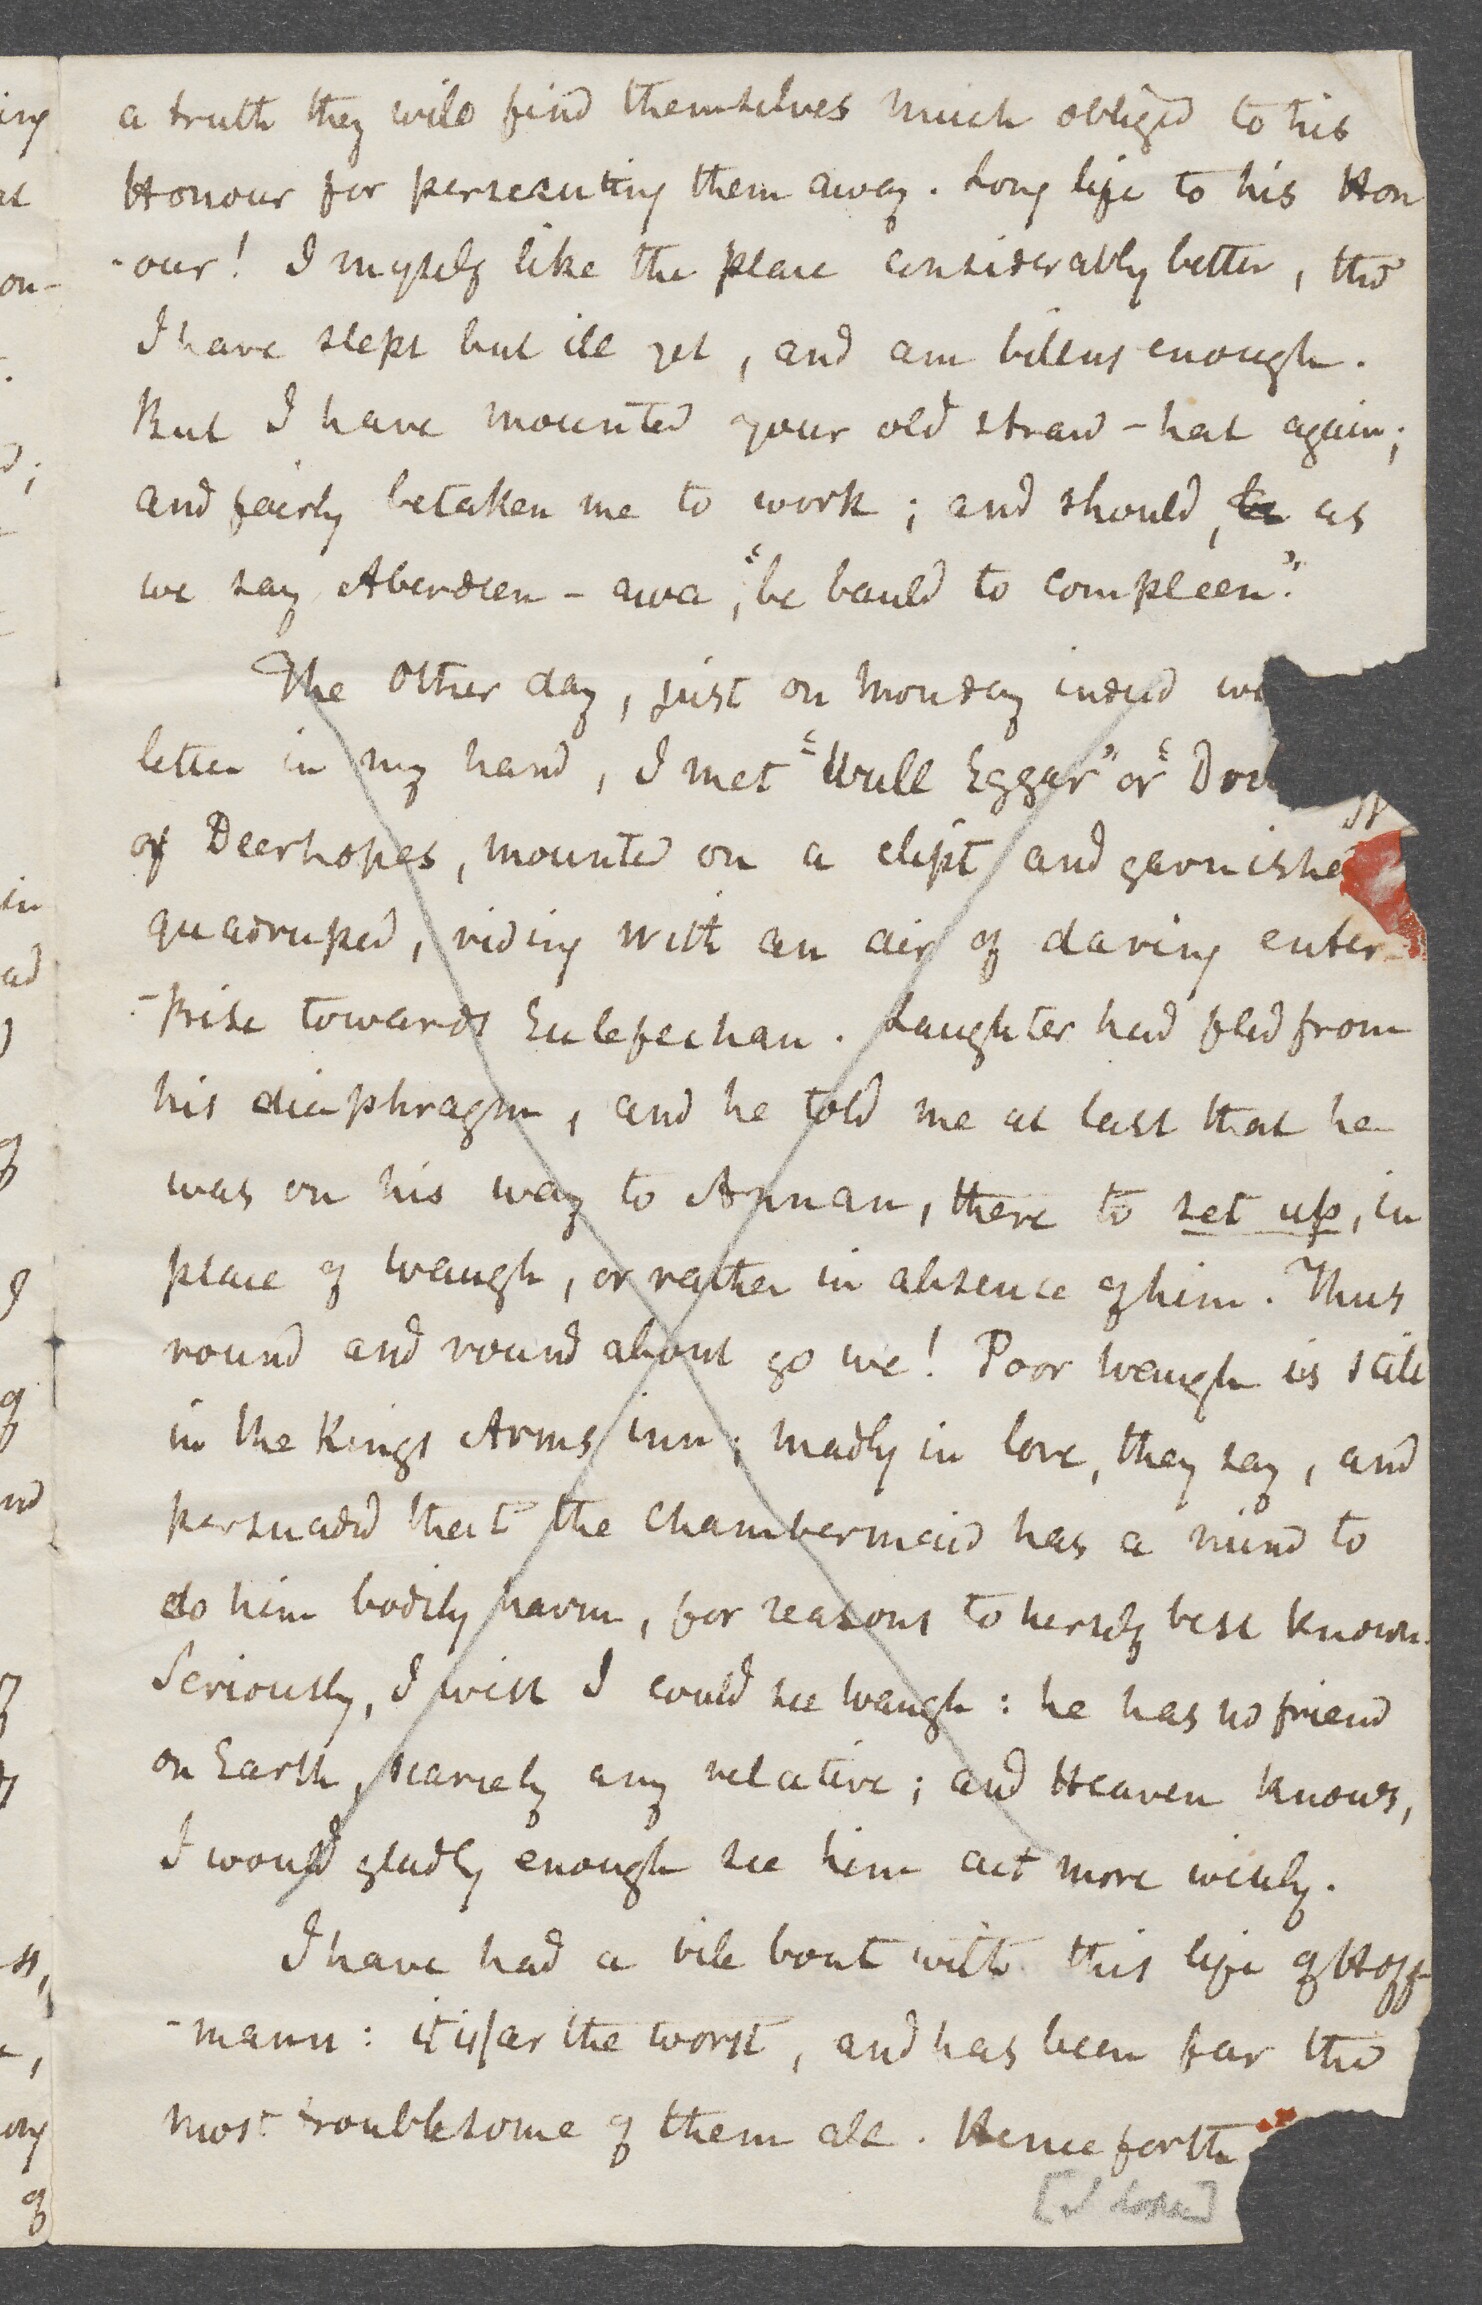 a truth they will find themselves much obliged to his
Honour for persecuting them away. Long life to his Hon
-our! I myself like the place considerably better, tho'
I have slept but ill yet, and am bilious enough.
But I have mounted your old straw-hat again;
and fairly betaken me to work; and should, as
we say Aberdeen-awa, "be bauld to compleen".
The other day, just on Monday indeed
letter in my hand, I met "Wull Eggar" or "
of Deerhopes, mounted on a clipt and garnished
quadruped, riding with an air of daring enter-
-prise towards Ecclefechan. Laughter had fled from
his diaphragm, and he told me at last that he
was on his way to Annan, there to set up, in
place of Waugh, or rather in absence of him. Thus
round and round about go we! Poor Waugh is still
in the Kings Arms inn; madly in love, they say, and
persuaded that the Chambermaid has a mind to
do him bodily harm, for reasons to herself best known.
Seriously, I wish I could see Waugh: he has no friend
on Earth, scarcely any relative; and Heaven knows,
I would gladly enough see him act more wisely.
I have had a vile bout with this life of Hoff
-mann: it is far the worst, and has been far the
most troublesome of them all. Henceforth